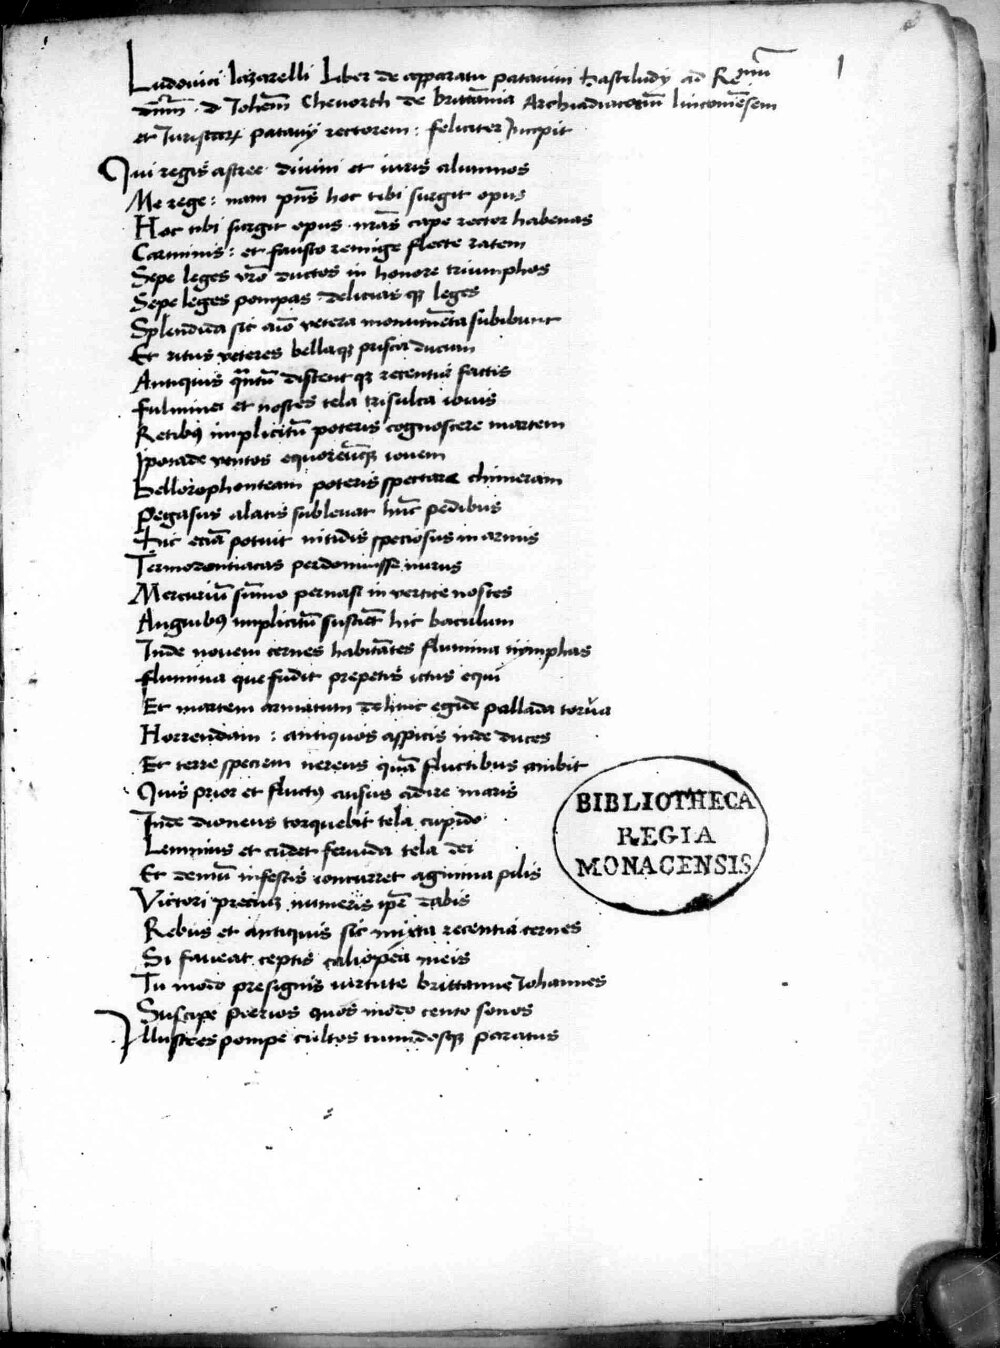 1
Ludouici lazarelli Liber de apparatu patauini hastiludij ad Re.mū
dnm̄ . d Johēm Cheuorth de brittānia Archidiaconū linconiēsem
et Juristarꝝ patauij rectorem : feliciter Jncipit
Qui regis astree diuini et iuris alumnos
Me rege : nam pn̄s hoc tibi surgit opus
Hoc tibi surgit opus nr̄as cape rector habenas
Carminis : et fausto remige flecte ratem
Sepe leges vr̄o ductos in honore triumphos
Sepe leges pompas delicias qꝫ leges
Splendida sic aīo vetera monumēta subibunt
Et ritus veteres bellaqꝫ prisca ducum
Antiquis qūtū distent qꝫ recentia factis
Fulminei et nostes tela trisulca iouis
Retibꝰ implicitū poteris cognoscere martem
Ipotade ventos equoreūqꝫ iouem
bellorophonteam poteris spectare chimeram
Pegasus alatis subleuat hūc pedibus
Hic eciā potuit nitidis speciosus in armis
Termodontiacas perdomuisse nurus
Mercuriū sūmo pernasi in vertice nostes
Anguibꝰ implicitū sustinet hic baculum
Inde nouem cernes habitātes flumina nymphas
flumina que fudit prepetis ictus equi
Et martem armatum dehinc egide pallada torua
Horrendam : antiquos aspicis inde duces
Et terre speciem nereus quā fluctibus ambit
Quis prior et fluctꝰ ausus adire maris
Inde dioneus torquebit tela cupido
Lemnius et cudet feruida tela dei
Et demū infestis concurret agmina pilis
Victori precium numeris ipē dabis
Rebus et antiquis sic mixta recentia cernes
Si faueat ceptis caliopea meis
Tu modo presignis virtute brittanne Johannes
Suscipe pierios quos modo cento sonos
Illustres pompe cultos tumidosqꝫ paratus
BIBLIOTHECA
REGIA
MONACENSIS